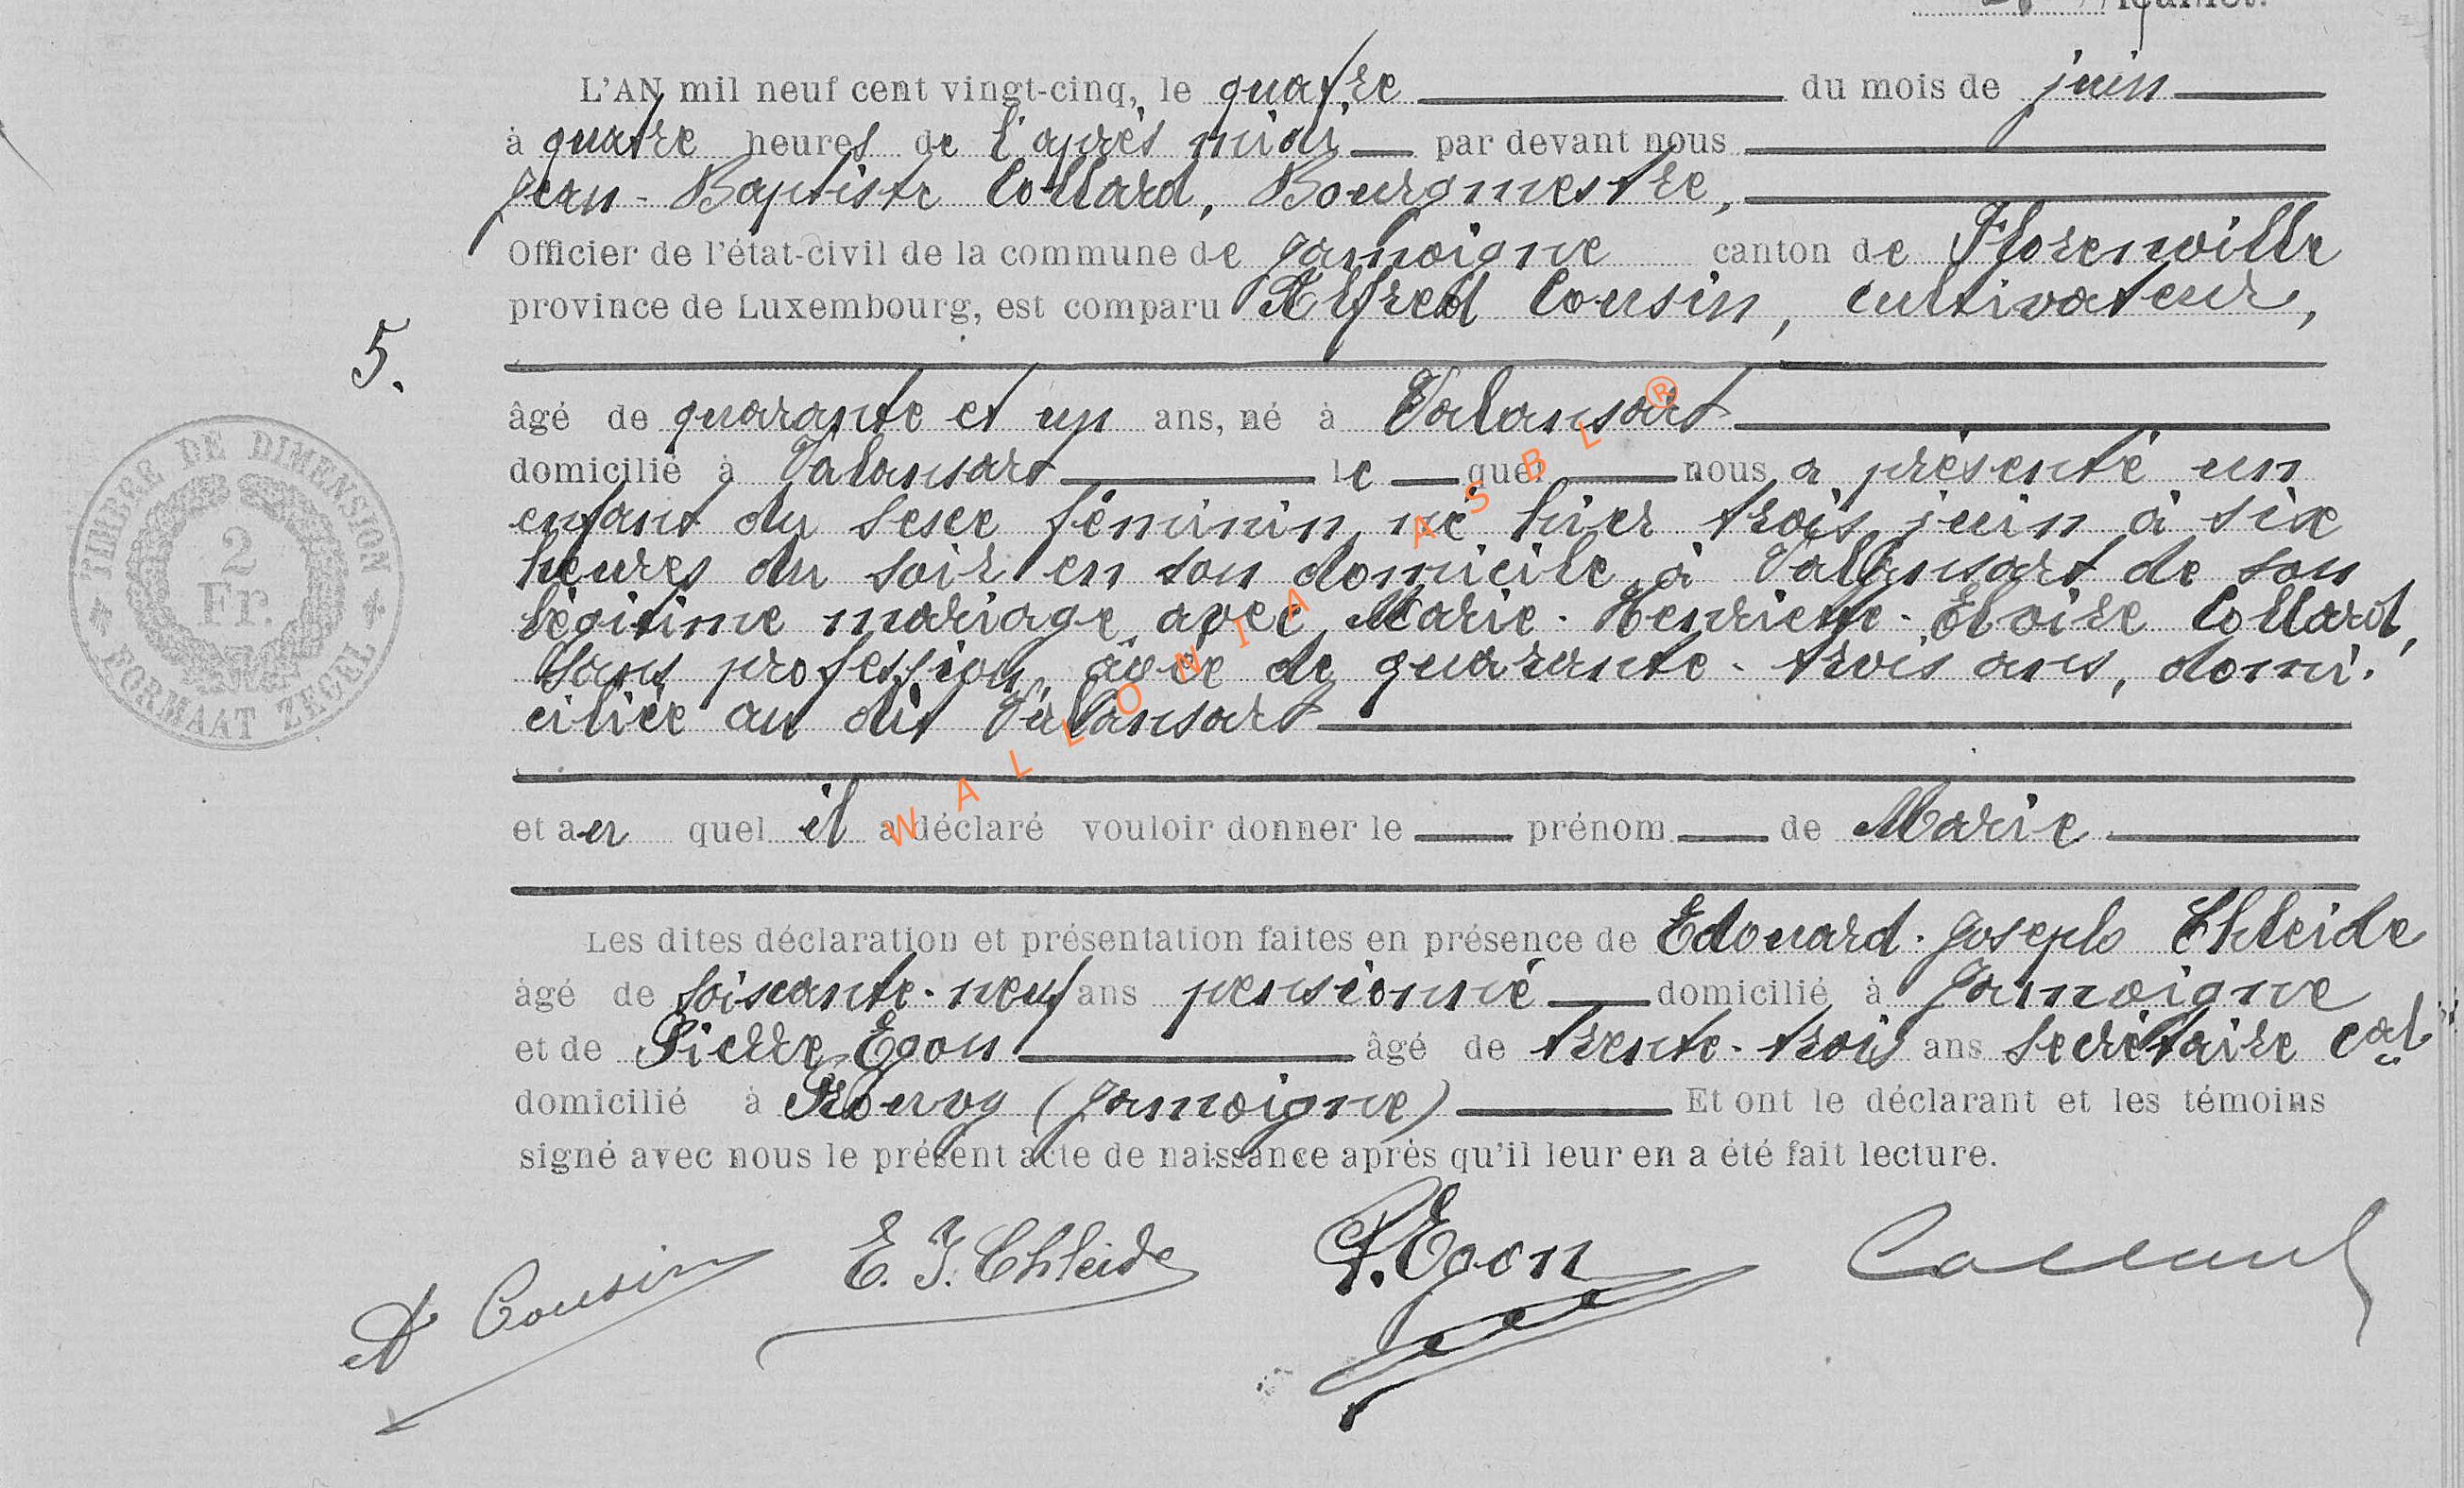 feuillet.
L'AN mil neuf cent vingt-cinq, le quatre du mois de juin
à quatre heures de l'après midi par devant nous
Jean-Baptiste Collard, Bourgmestre,
Officier de l'état-civil de la commune de Jamoigne canton de Florenville
province de Luxembourg, est comparu Alfred Cousin, cultivateur,
5.
âgé de quarante et un ans, né à Valansart
domicilié à Valansart le quel nous a présenté un
enfant du sexe féminin, né hier trois juin à six
heures du soir en son domicile à Valansart de son
légitime mariage avec Marie-Henriette-Eloïse Collard,
sans profession, âgée de quarante-trois ans, domi-
ciliée au dit Valansart
et au quel il a déclaré vouloir donner le prénom de Marie
Les dites déclaration et présentation faites en présence de Edouard-Joseph Chleide
âgé de soixante-neuf ans pensionné domicilié à Jamoigne
et de Pierre Egon âgé de trente-trois ans secrétaire cal
domicilié à Prouvy (Jamoigne) Et ont le déclarant et les témoins
signé avec nous le présent acte de naissance après qu'il leur en a été fait lecture.
A Cousin E. J. Chleide P. Egon Collard
TIMBRE DE DIMENSION
2
Fr.
FORMAAT ZEGEL
WALLONIA ASBL ®